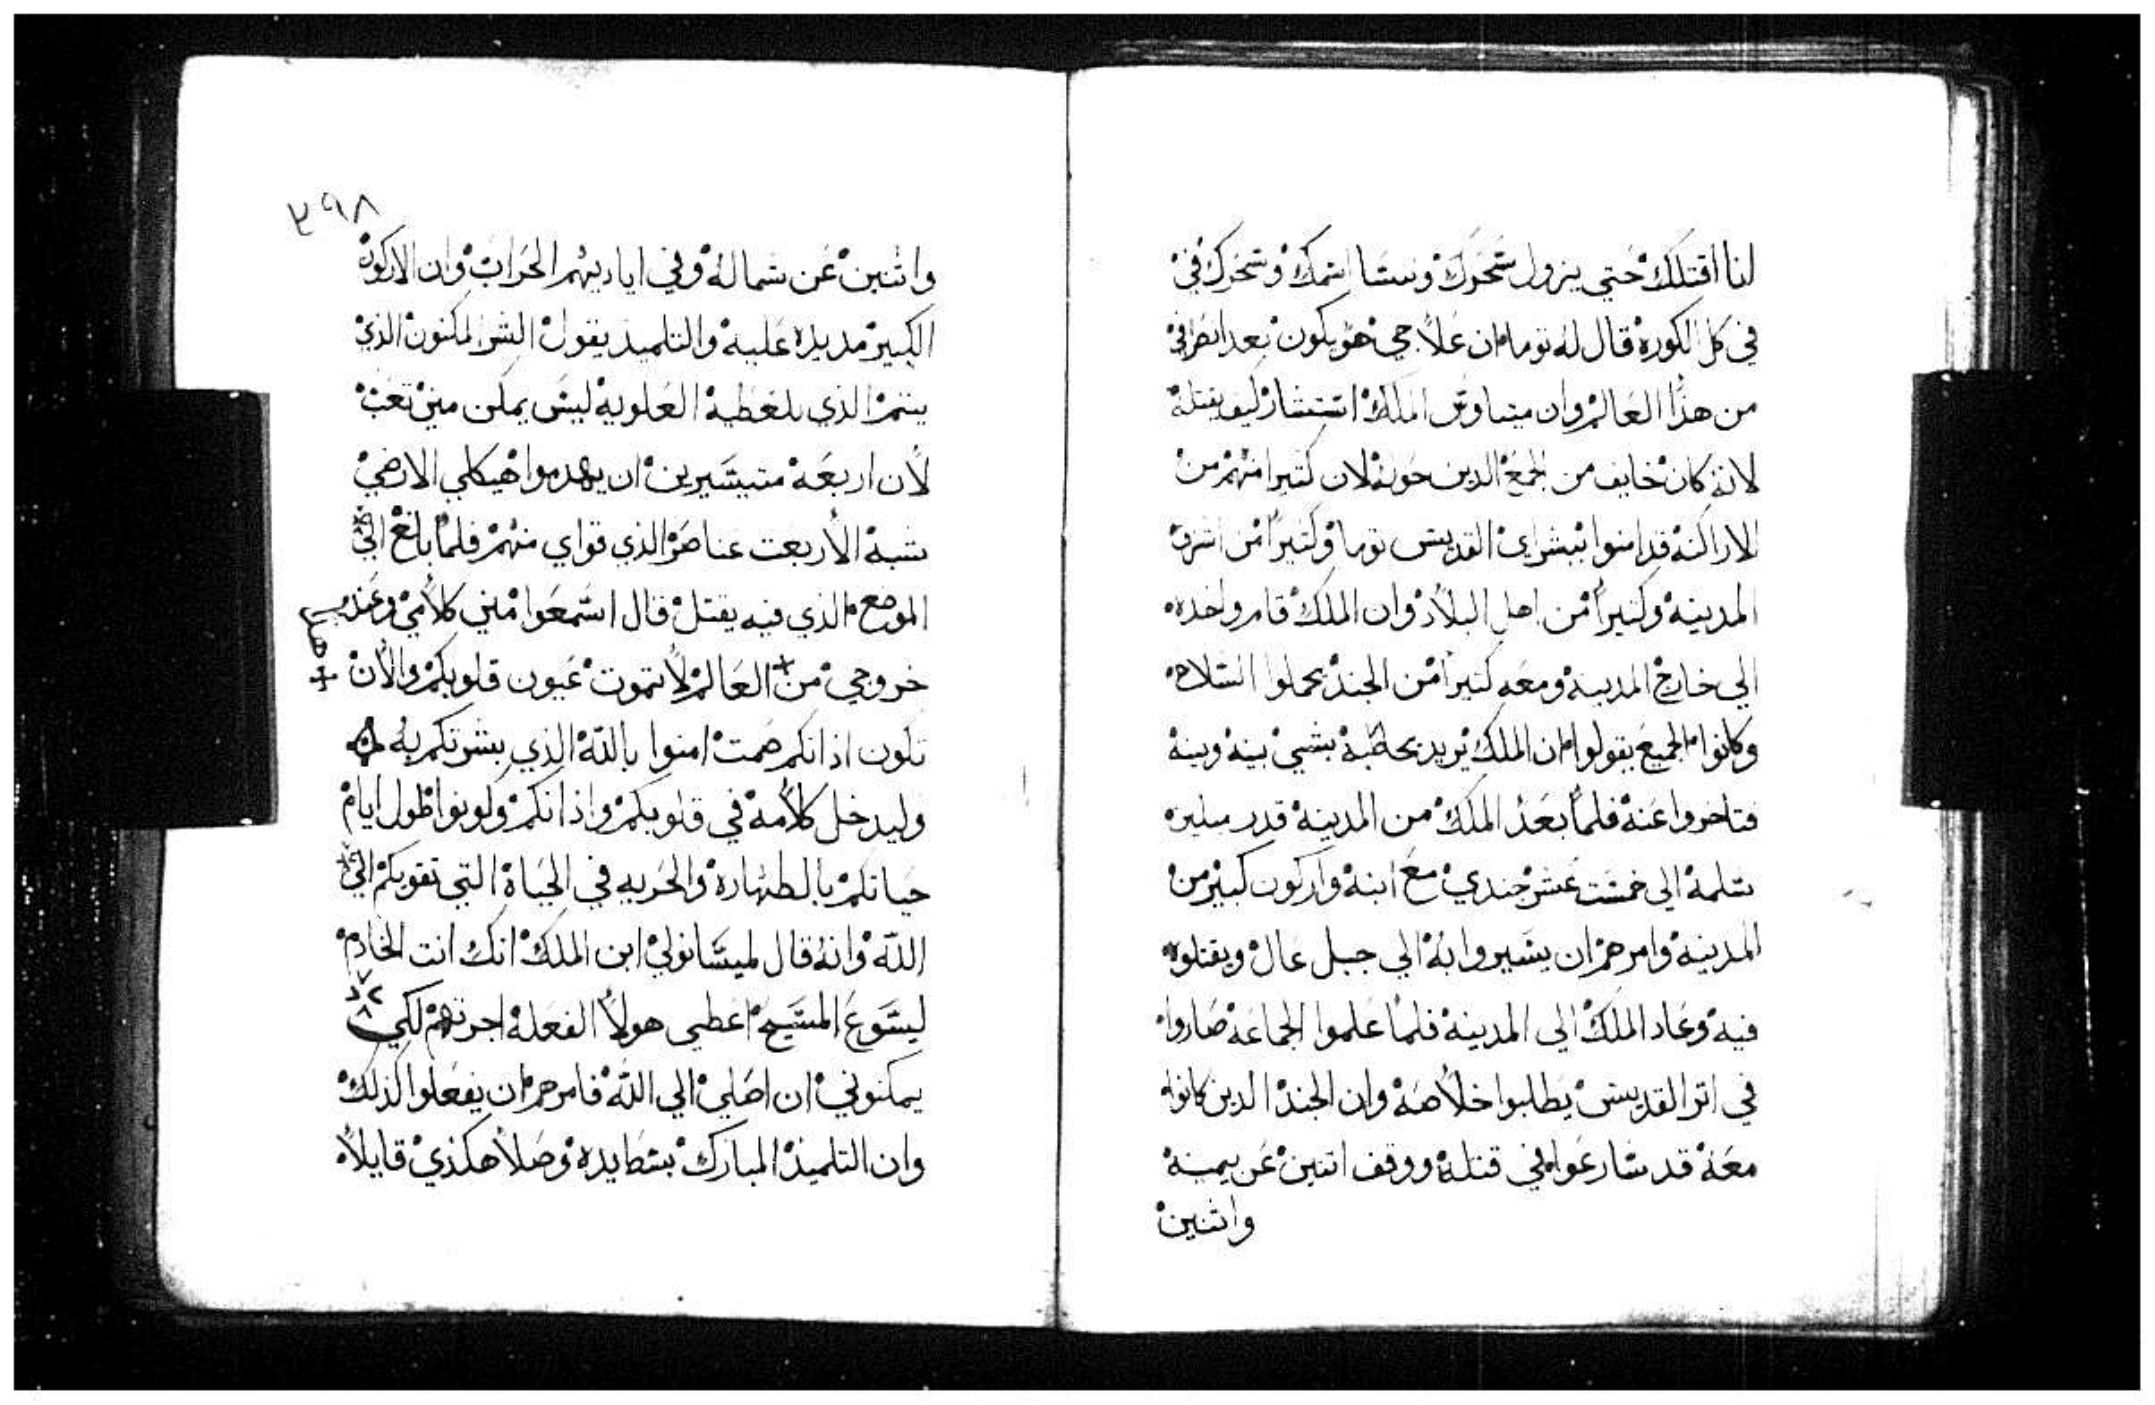 لنا اقتلك حتي يزول سحرك وينسا اسمك وسحرك في
في كل الكورة قال له توما ان علاجي هو يكون بعد انصرافي
من هذا العالم وان ميساوس الملك استشار كيف يقتله
لانه كان خايف من الجمع الدين حوله لان كتيرا منهم من
الاراكنة قد امنوا ببشراي القديس توما وكتيرا من اشراف
المدينة وكتيرا من اهل البلاد وان الملك قام واخده
الي خارج المدينة ومعه كتيرا من الجند يحملوا السلاح
وكانوا الجميع يقولوا ان الملك يريد يخاطبه بشي بينه وبينه
فتاخروا عنه فلما بعد الملك من المدينة قدر ميلين
سلمه الي خمست عشر جندي مع ابنه واركون كبير من
المدينة وامرهم ان يسيروا به الي جبل عال ويقتلوه
فيه وعاد الملك الي المدينة فلما علموا الجماعة صاروا
في اتر القديس يطلبوا خلاصه وان الجند الدين كانوا
معه قد سارعوا في قتله ووقف اتنين عن يمينه
واثنين
٣٩٨
واثنين عن شماله وفي اياديهم الحراب وان الاركون
الكبير مد يده عليه والتلميذ يقول السر المكنون الذي
يتم الذي بلعطية العلوية ليس يمكن مني تعب
لان اربعة متيسيرين ان يهدموا هيكلي الارضي
شبه الأربعت عناصر الذي قواي منهم فلما بلغ الي
الموضع الذي فيه يقتل قال اسمعوا مني كلامي وعند
خروجي من العالم لا تموت عيون قلوبكم والان
تكون اذانكم صمت امنوا بالله الذي بشرتكم به
وليدخل كلامه في قلوبكم واذانكم وكونوا طول ايام
حياتكم بالطهارة والحريه في الحياة التي تقربكم الي
الله وانه قال لميسانولي ابن الملك انك انت الخادم
ليسوع المسيح اعطي هولا الفعلة اجرتهم لكي
يمكنوني ان اصلي الي الله فامرهم ان يفعلوا كذلك
وان التلميذ المبارك بسط يده وصلا هكذي قايلا